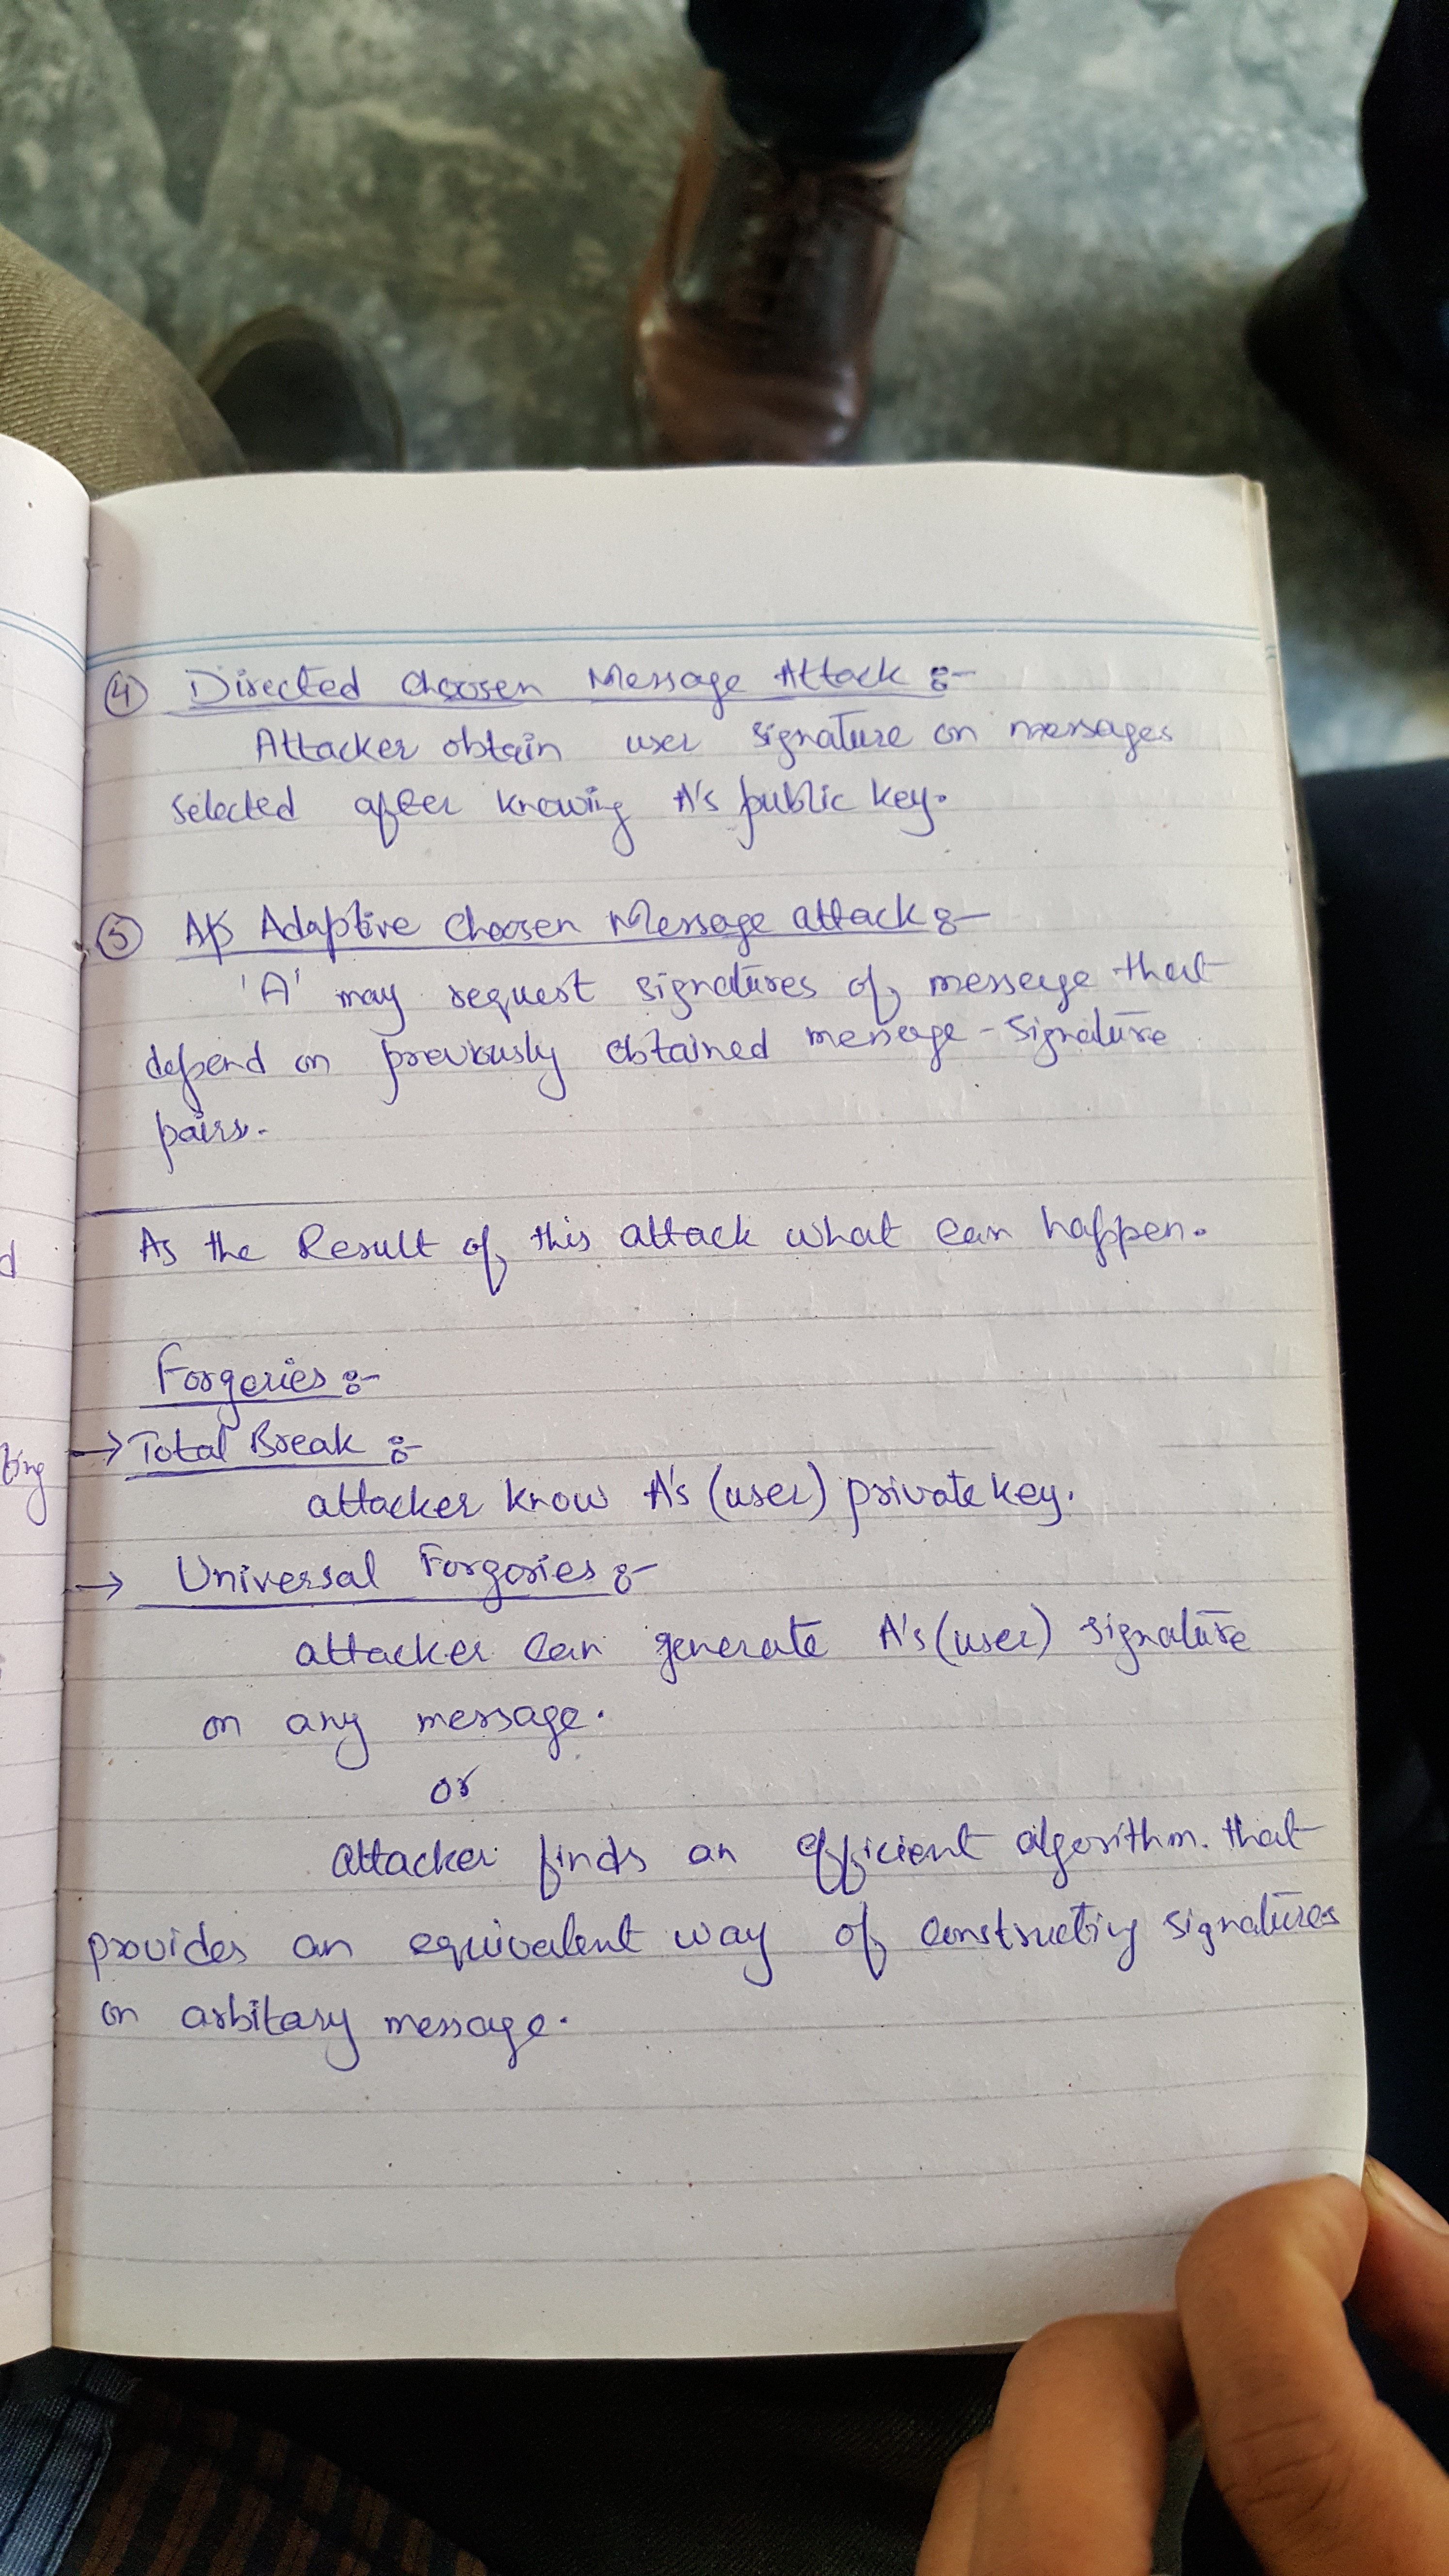 ④ Directed Choosen Message Attack :-
Attacker obtain user signature on messages
selected after knowing A's public key.
⑤ Adaptive Choosen Message attack :-
'A' may request signatures of message that
depend on previously obtained message - signature
pairs.
As the Result of this attack what can happen.
Forgeries :-
→ Total Break :-
attacker know A's (user) private key.
→ Universal Forgories :-
attacker can generate A's (user) signature
on any message.
or
attacker finds an efficient algorithm. that
provides an equivalent way of constructing signatures
on arbitary message.
d
ting